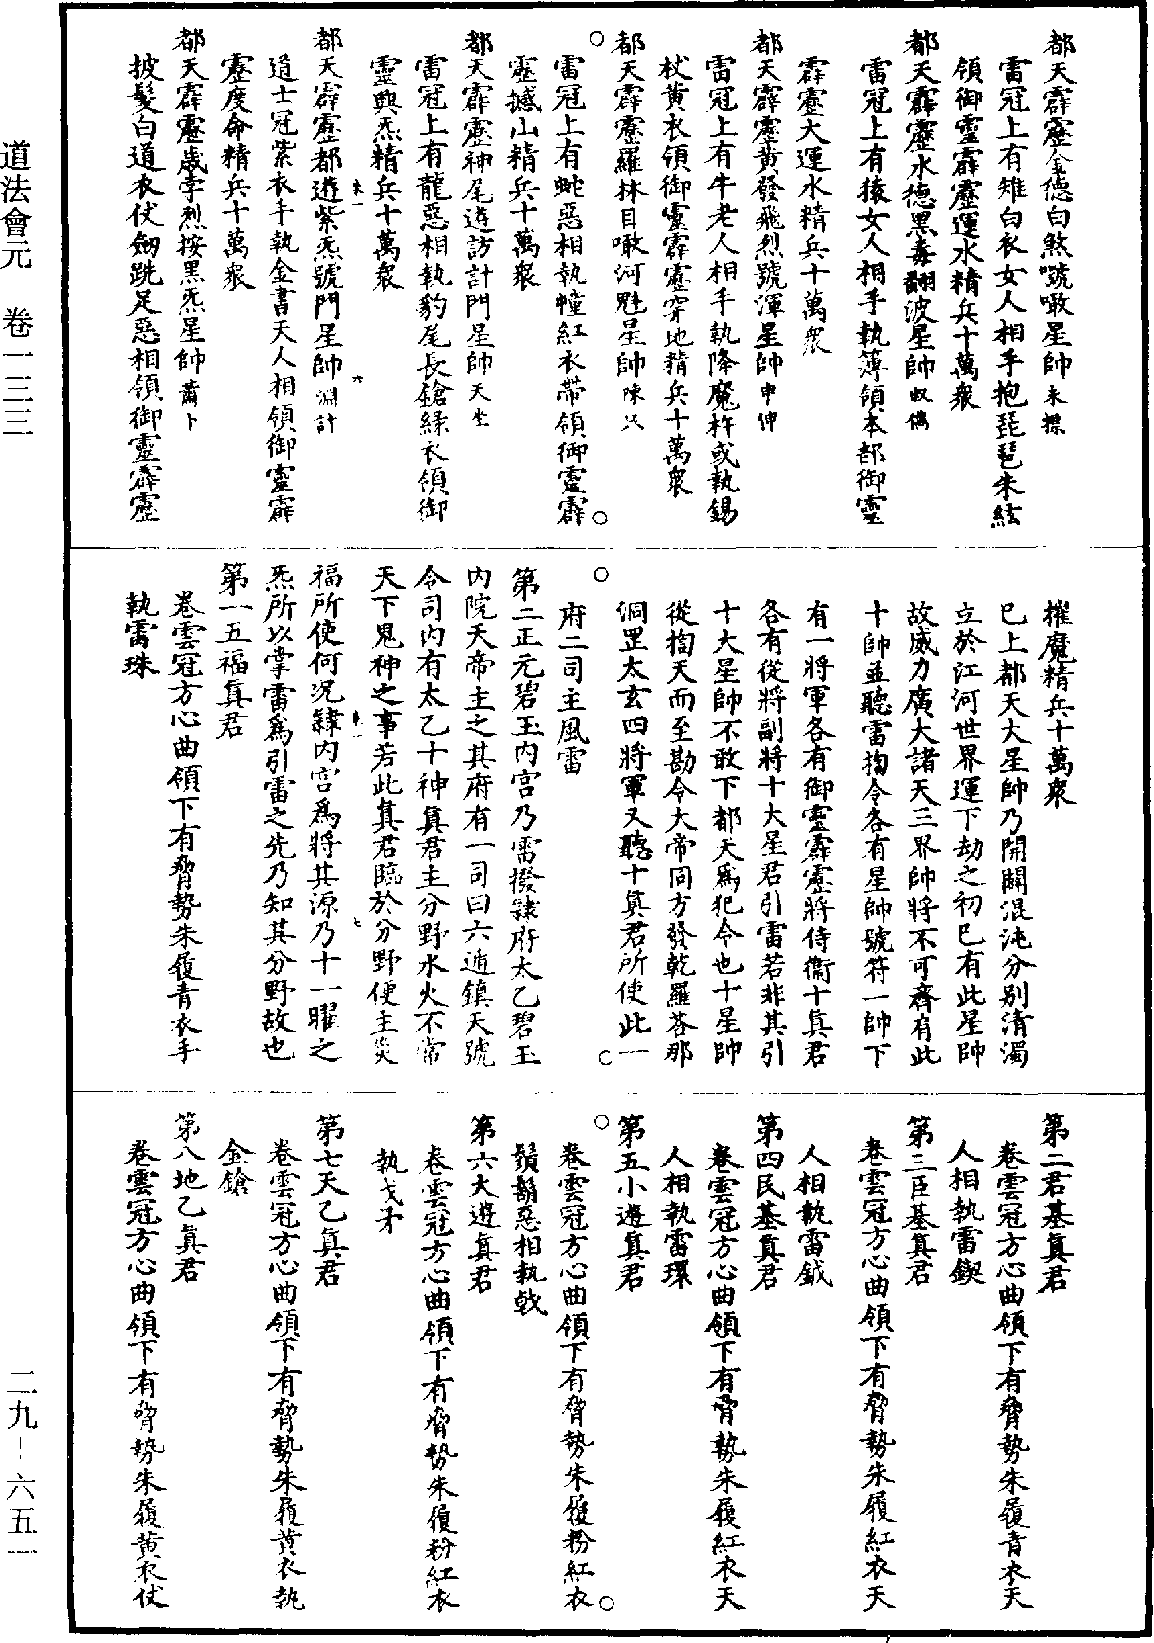 都天霹靂金德白煞號噉星帥
雷冠上有雉白衣女人相手抱琵琶朱絃
領御靈霹靂運水精兵十萬衆
都天霹靂水德黑毒翻波星帥
雷冠上有猿女人相手執簿領本部御靈
霹靂大運水精兵十萬衆
都天霹靂黄發飛烈號渾星帥
雷冠上有牛老人相手執降魔杵或執錫
杖黄衣領御靈霹靂穿地精兵十萬衆
都天霹靂羅林目噉河魁星帥
雷冠上有蛇惡相執幢紅衣帶領御靈霹
靂撼山精兵十萬衆
都天霹靂神尾遊訪計門星帥
雷冠上有龍惡相執豹尾長鎗綠衣領御
靈興炁精兵十萬衆
都天霹靂都遊紫炁號門星帥
道士冠紫衣手執金書天人相領御靈霹
靂度命精兵十萬衆
都天霹靂歲孛烈按黑炁星帥
披髮白道衣仗劒跣足惡相領御靈霹靂
摧魔精兵十萬衆
已上都天大星帥乃開闢混沌分别清濁
立於江河世界運下劫之初已有此星帥
故威力廣大諸天三界帥將不可齊肩此
十帥並聽雷掏令各有星帥號符一帥下
有一將軍各有御靈霹靂將侍衞十眞君
各有從將副將十大星君引雷若非其引
十大星帥不敢下都天爲犯令也十星帥
從掏天而至勘令大帝同方發乾羅荅那
洞罡太玄四將軍又聽十眞君所使此一
府二司主風雷
第二正元碧玉内宫乃雷撥隷府太乙碧玉
内院天帝主之其府有一司曰六遁鎮天號
令司内有太乙十神眞君主分野水火不常
天下鬼神之事若此眞君臨於分野便主災
福所使何況隷内宫爲將其源乃十一曜之
炁所以掌雷爲引雷之先乃知其分野故也
第一五福眞君
卷雲冠方心曲領下有脅勢朱履青衣手
執雷珠
第二君基眞君
卷雲冠方心曲領下有脅勢朱履青衣天
人相執雷鍥
第三臣基眞君
卷雲冠方心曲領下有脅勢朱履紅衣天
人相執雷鉞
第四民基眞君
卷雲冠方心曲領下有脅勢朱履紅衣天
人相執雷環
第五小遊眞君
卷雲冠方心曲領下有脅勢朱履粉紅衣
鬚鬍惡相執戟
第六大遊眞君
卷雲冠方心曲領下有脅勢朱履粉紅衣
執戈矛
第七天乙眞君
卷雲冠方心曲領下有脅勢朱履黄衣執
金鎗
第八地乙眞君
卷雲冠方心曲領下有脅勢朱履黄衣仗
道法會元　卷一三三
二九－六五一